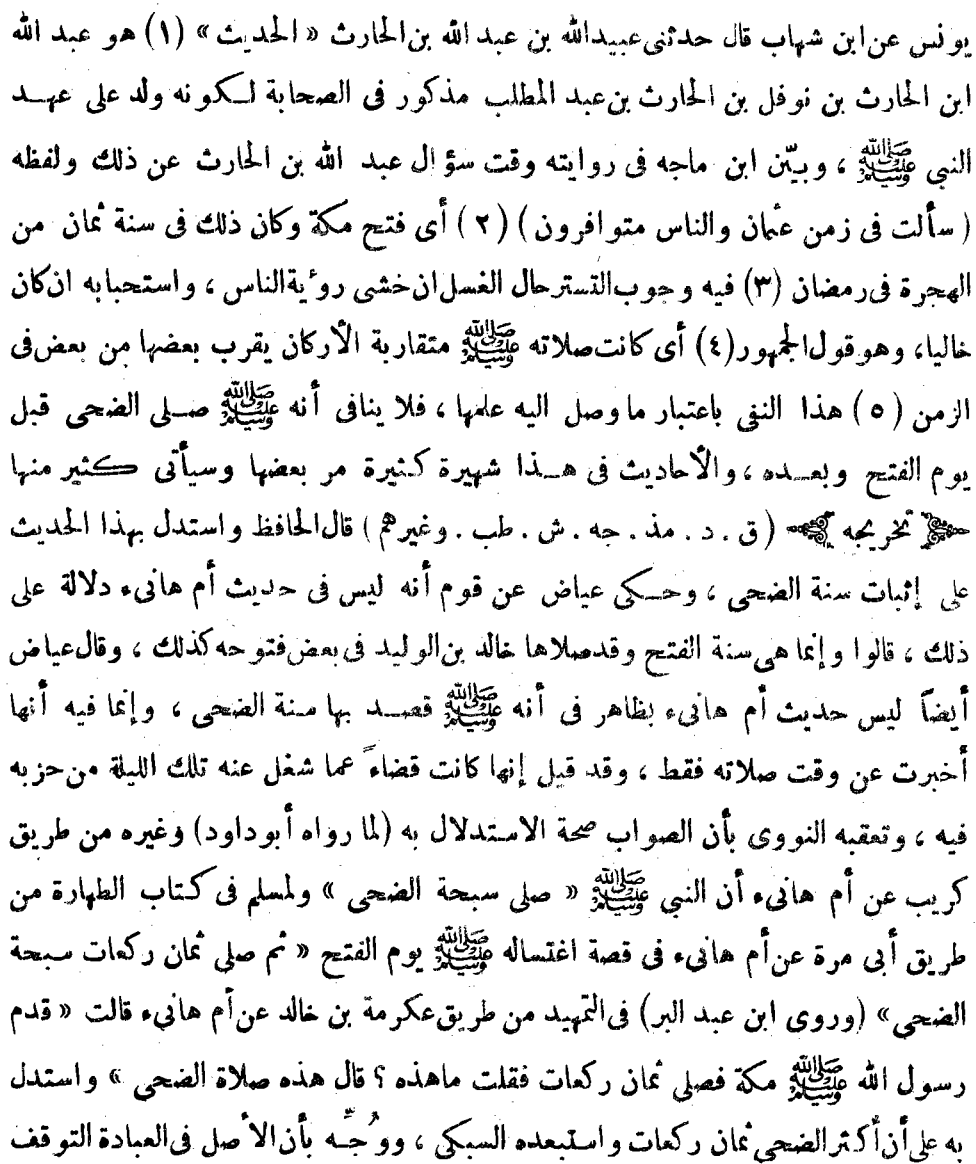 يونس عن ابن شهاب قال حدثنى عبيدالله بن عبد الله بن الحارث « الحديث » (١) هو عبد الله
ابن الحارث بن نوفل بن الحارث بن عبد المطلب مذكور فى الصحابة لكونه ولد على عهد
النبي ﷺ ، وبيّن ابن ماجه فى روايته وقت سؤال عبد الله بن الحارث عن ذلك ولفظه
( سألت فى زمن عثمان والناس متوافرون ) (٢) أى فتح مكة وكان ذلك فى سنة ثمان من
الهجرة فى رمضان (٣) فيه وجوب التستر حال الغسل ان خشى رؤية الناس ، واستحبابه ان كان
خاليا، وهو قول الجمهور (٤) أى كانت صلاته ﷺ متقاربة الأركان يقرب بعضها من بعض فى
الزمن (٥) هذا النفى باعتبار ما وصل اليه علمها ، فلا ينافى أنه ﷺ صلى الضحى قبل
يوم الفتح وبعده ، والأحاديث فى هذا شهيرة كثيرة مر بعضها وسيأتى كثير منها
﴿ تخريجه ﴾ ( ق . د . مذ . جه . ش . طب . وغيرهم ) قال الحافظ واستدل بهذا الحديث
على إثبات سنة الضحى ، وحكى عياض عن قوم أنه ليس فى حديث أم هانىء دلالة على
ذلك ، قالوا وإنما هى سنة الفتح وقد صلاها خالد بن الوليد فى بعض فتوحه كذلك ، وقال عياض
أيضاً ليس حديث أم هانىء بظاهر فى أنه ﷺ قصد بها سنة الضحى ، وإنما فيه أنها
أخبرت عن وقت صلاته فقط ، وقد قيل إنها كانت قضاءً عما شغل عنه تلك الليلة من حزبه
فيه ، وتعقبه النووى بأن الصواب صحة الاستدلال به (لما رواه أبوداود) وغيره من طريق
كريب عن أم هانىء أن النبي ﷺ « صلى سبحة الضحى » ولمسلم فى كتاب الطهارة من
طريق أبى مرة عن أم هانىء فى قصة اغتساله ﷺ يوم الفتح « ثم صلى ثمان ركعات سبحة
الضحى» (وروى ابن عبد البر) فى التمهيد من طريق عكرمة بن خالد عن أم هانىء قالت « قدم
رسول الله ﷺ مكة فصلى ثمان ركعات فقلت ماهذه ؟ قال هذه صلاة الضحى » واستدل
به على أن أكثر الضحى ثمان ركعات واستبعده السبكى ، ووُجِّه بأن الأصل فى العبادة التوقف